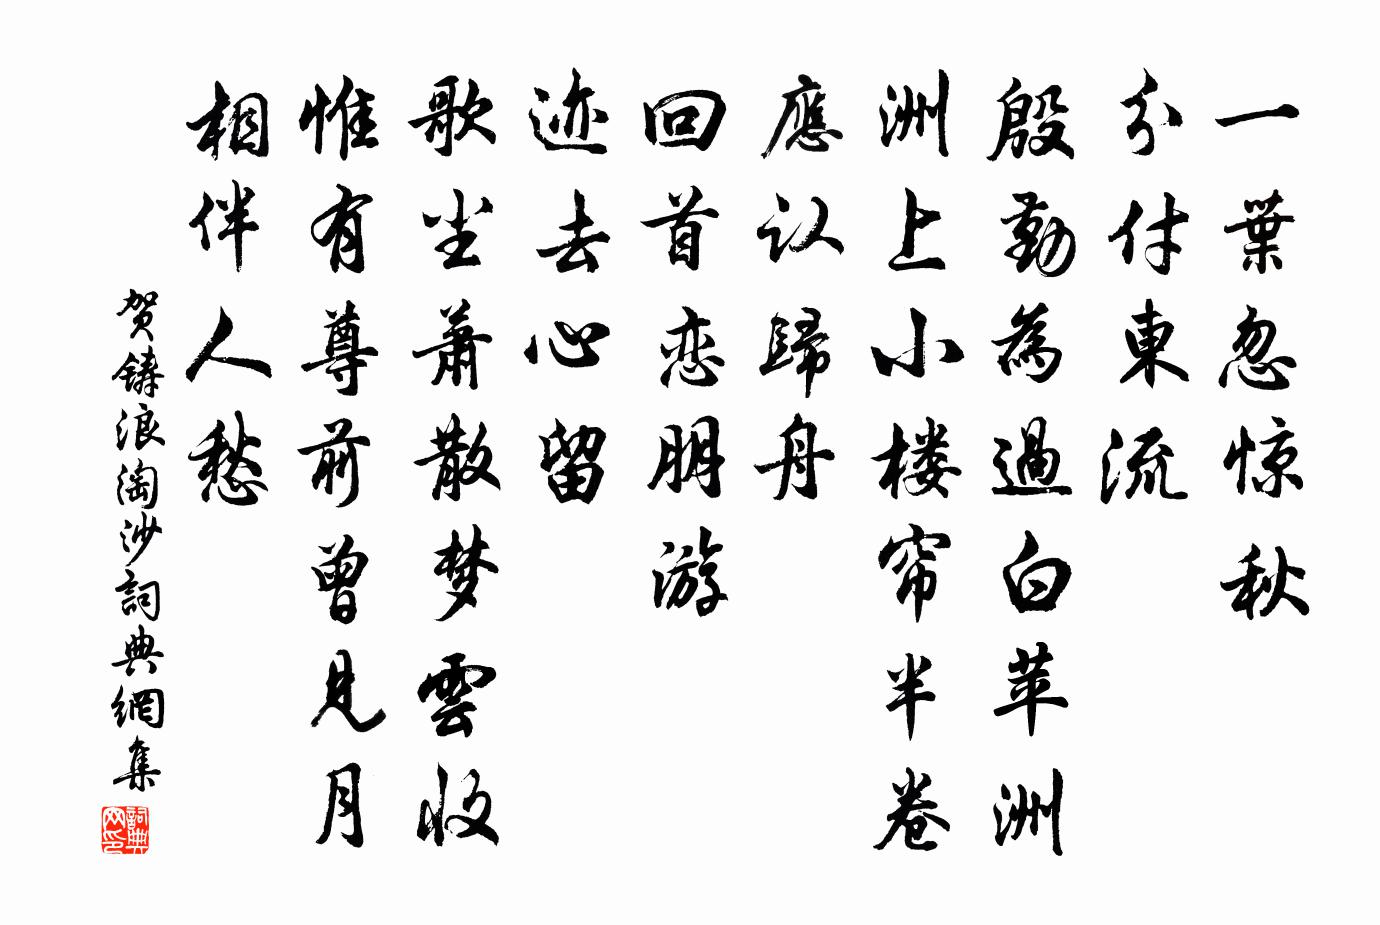 一葉忽惊秋
分付東流
殷勤為過白苹洲
洲上小楼帘半卷
應认歸舟
回首恋朋游
迹去心留
歌尘萧散梦雲收
惟有尊前曾見月
相伴人愁
贺铸浪淘沙詞典網集
詞典网印